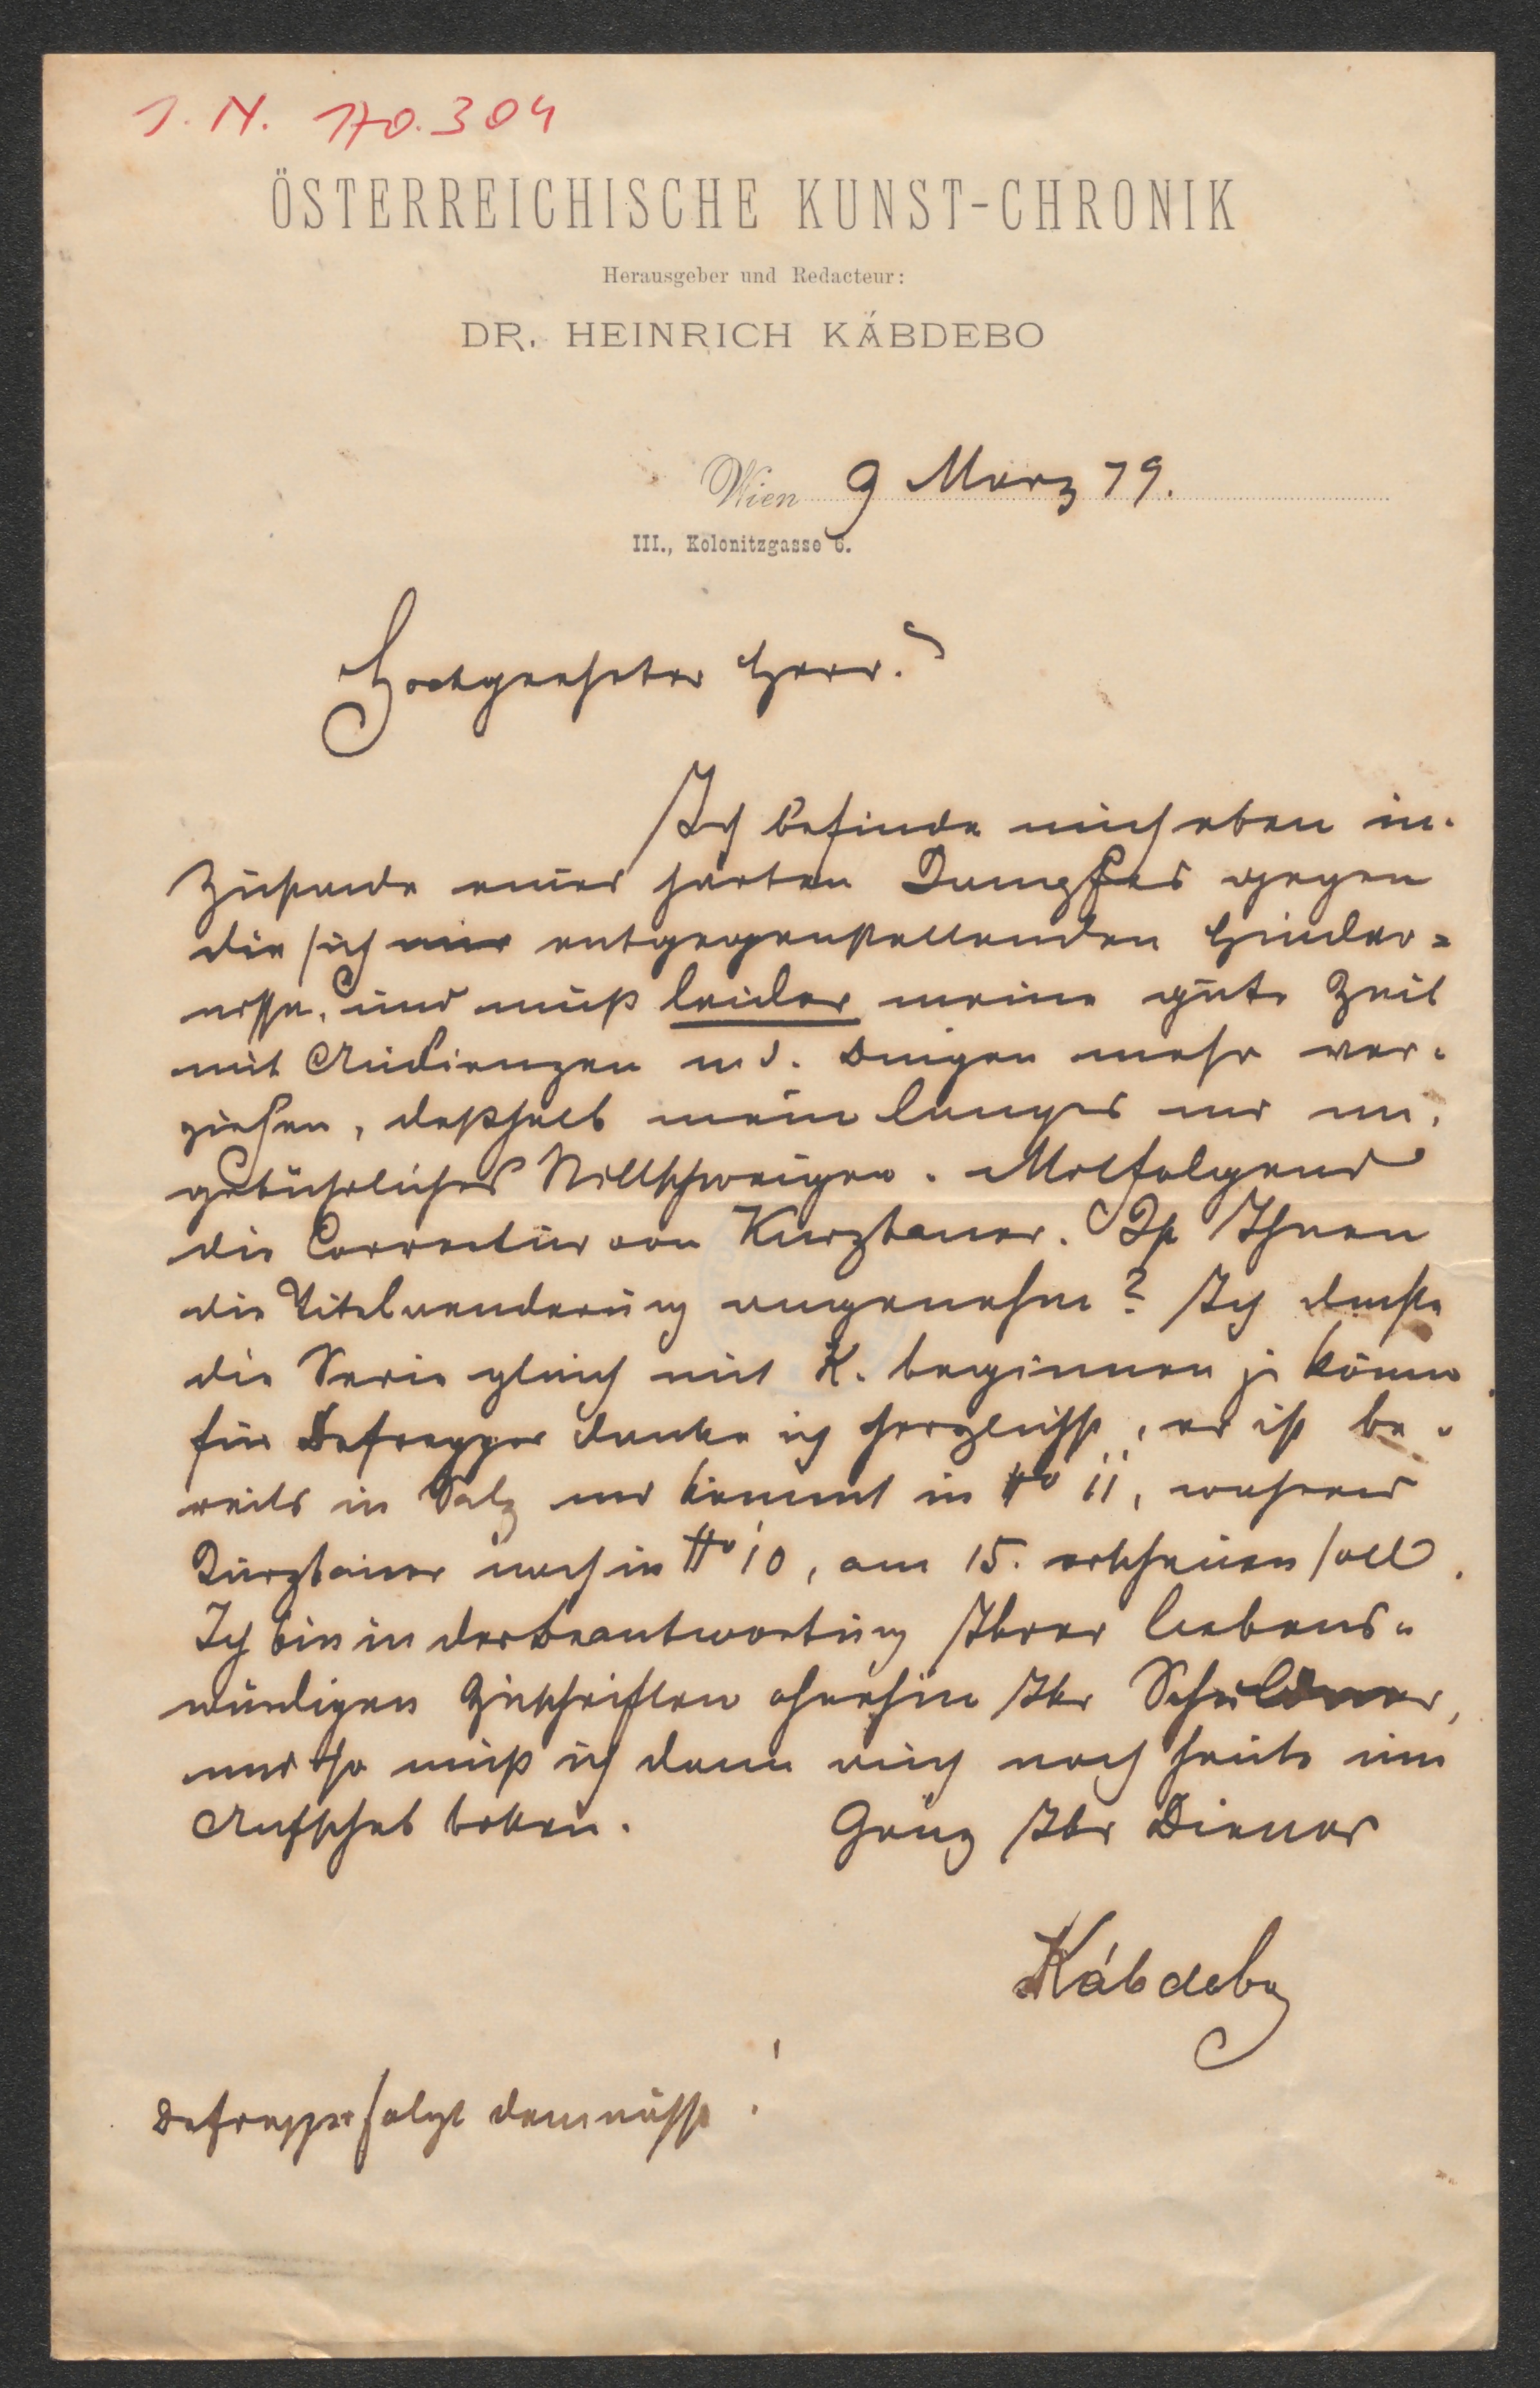 I. N. 170.304
ÖSTERREICHISCHE KUNST-CHRONIK
Herausgeber und Redacteur:
DR. HEINRICH KÁBDEBO
Wien 9 März 79.
III., Kolonitzgasse 6.
Hochgeehrter Herr!
Ich befinde mich eben im
Zustande eines harten Kampfes gegen
die sich mir entgegenstellenden Hinder=
nisse, und muß leider meine gute Zeit
mit Audienzen u d. Dingen mehr ver-
ziehen, deßhalb mein langes und un-
gebührliches Stillschweigen. Mitfolgend
die Correctur von Kurzbauer. Ist Ihnen
die Titelaenderung angenehm? Ich dachte
die Serie gleich mit K. beginnen zu können
für Defregger danke ich herzlichst, er ist be-
reits in Satz und kommt in No 11, während
Kurzbauer noch in No 10, am 15. erscheinen soll.
Ich bin in der Beantwortung Ihrer liebens-
würdigen Zuschriften ohnehin Ihr Schuldner,
und so muß ich denn auch noch heute um
Aufschub bitten. Ganz Ihr Diener
Kábdebo
Defregger folgt demnächst!